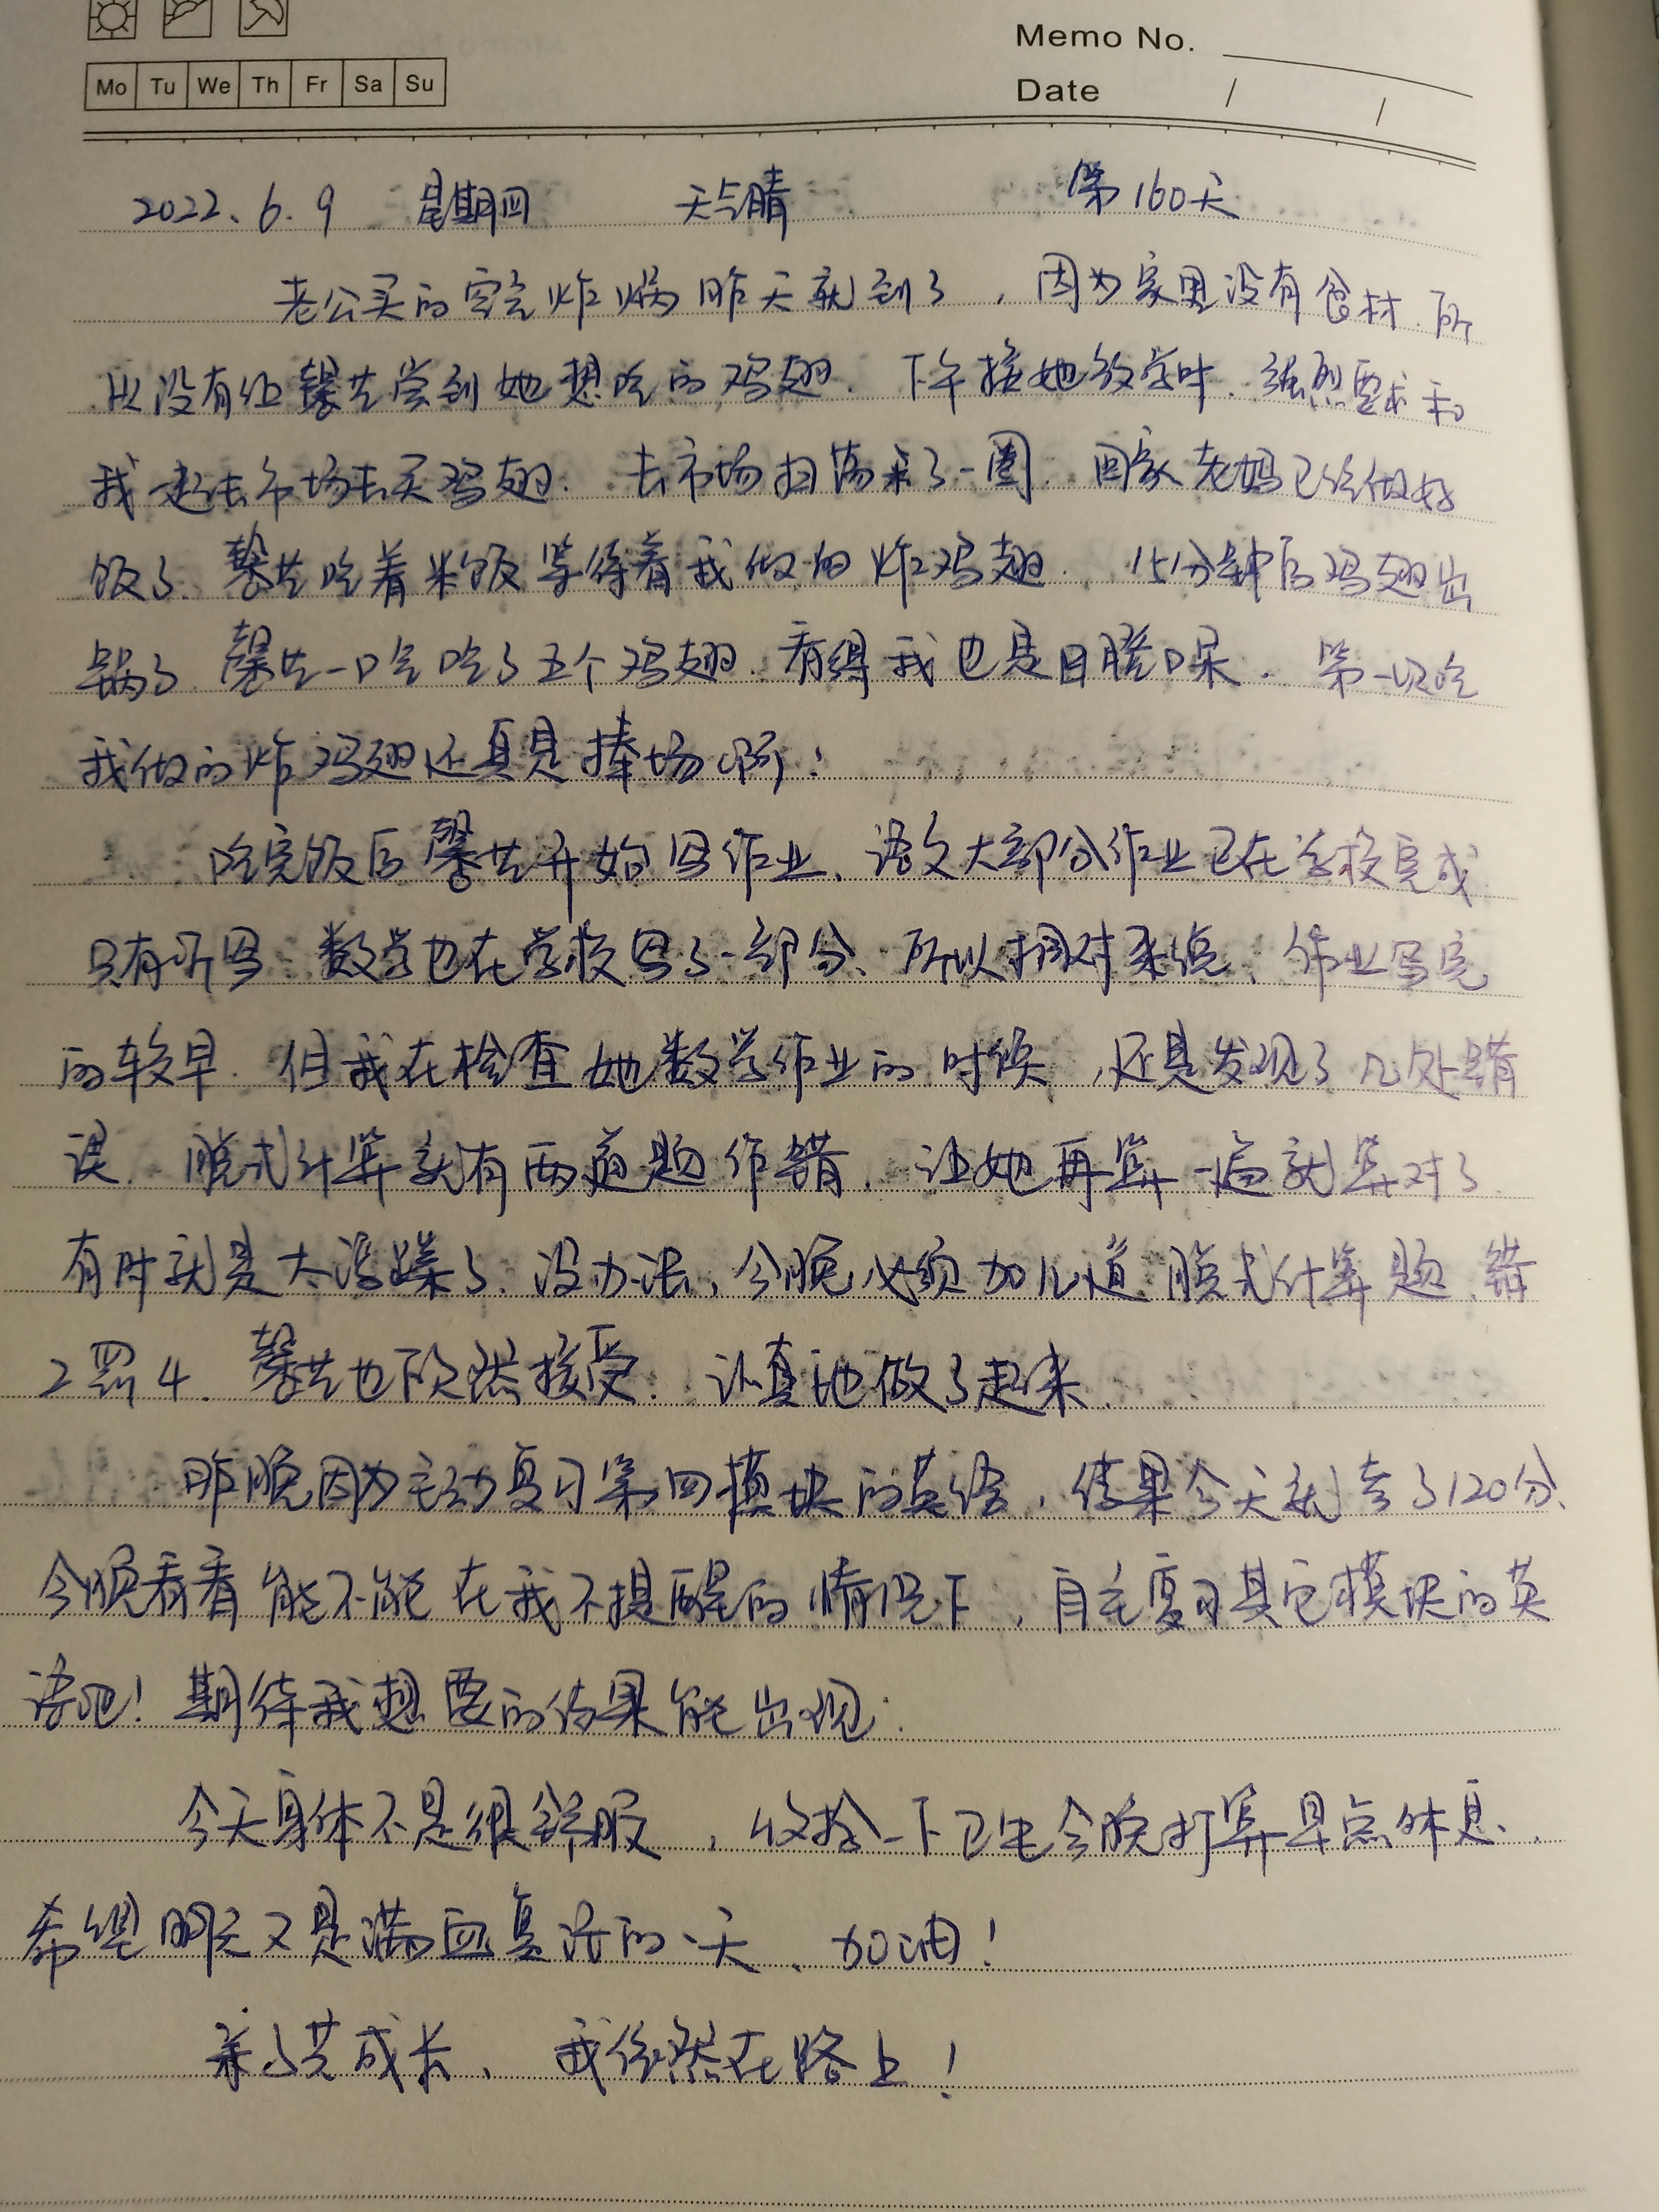 Memo No.
Mo Tu We Th Fr Sa Su
Date / /
2022.6.9 星期四 天气晴 第160天
老公买的空气炸锅昨天就到了，因为家里没有食材.所
以没有让馨艺尝到她想吃的鸡翅.下午接她放学时.强烈要求和
我一起去市场去买鸡翅.去市场扫荡来了一圈.回家老妈已经做好
饭了.馨艺吃着米饭等待着我做的炸鸡翅.15分钟后鸡翅出
锅了.馨艺一口气吃了五个鸡翅.看得我也是目瞪口呆.第一次吃
我做的炸鸡翅还真是捧场啊！
吃完饭后馨艺开始写作业、语文大部分作业已在学校完成
只有听写.数学也在学校写了一部分、所以相对来说、作业写完
的较早.但我在检查她数学作业的时候，还是发现了几处错
误.脱式计算就有两道题作错.让她再算一遍就算对了
有时就是太浮躁了.没办法，今晚必须加几道脱式计算题.错
2罚4.馨艺也欣然接受.认真地做了起来.
昨晚因为主动复习第四模块的英语，结果今天就考了120分、
今晚看看能不能在我不提醒的情况下，自主复习其它模块的英
语吧！期待我想要的结果能出现.
今天身体不是很舒服，收拾一下卫生今晚打算早点休息.
希望明天又是满血复活的一天、加油！
亲子共成长、我依然在路上！